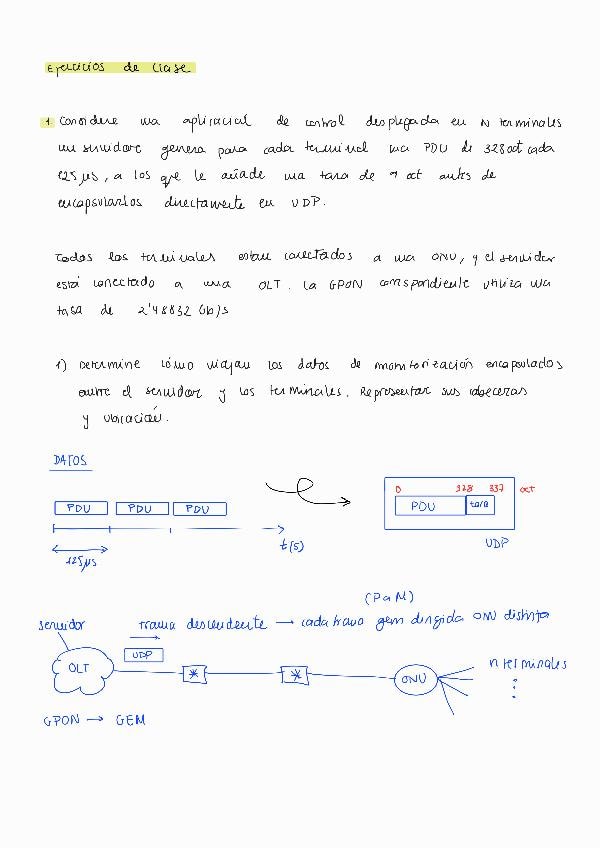 Ejercicios de clase
1. Considere una aplicación de control desplegada en N terminales
un servidor genera para cada terminal una PDU de 328 oct cada
125 μs, a los que le añade una tara de 9 oct antes de
encapsularlos directamente en UDP.
Todos los terminales estan conectados a una ONU, y el servidor
está conectado a una OLT. La GPON correspondiente utiliza una
tasa de 2'48832 Gb/s
1) Determine cómo viajan los datos de monitorización encapsulados
entre el servidor y los terminales. Representar sus cabeceras
y ubicación.
DATOS
PDU PDU PDU
125μs
t(s)
0 328 337 oct
PDU tara
UDP
(PaM)
servidor trama descendente → cada trama gem dirigida ONU distinta
OLT UDP ONU N terminales
GPON → GEM